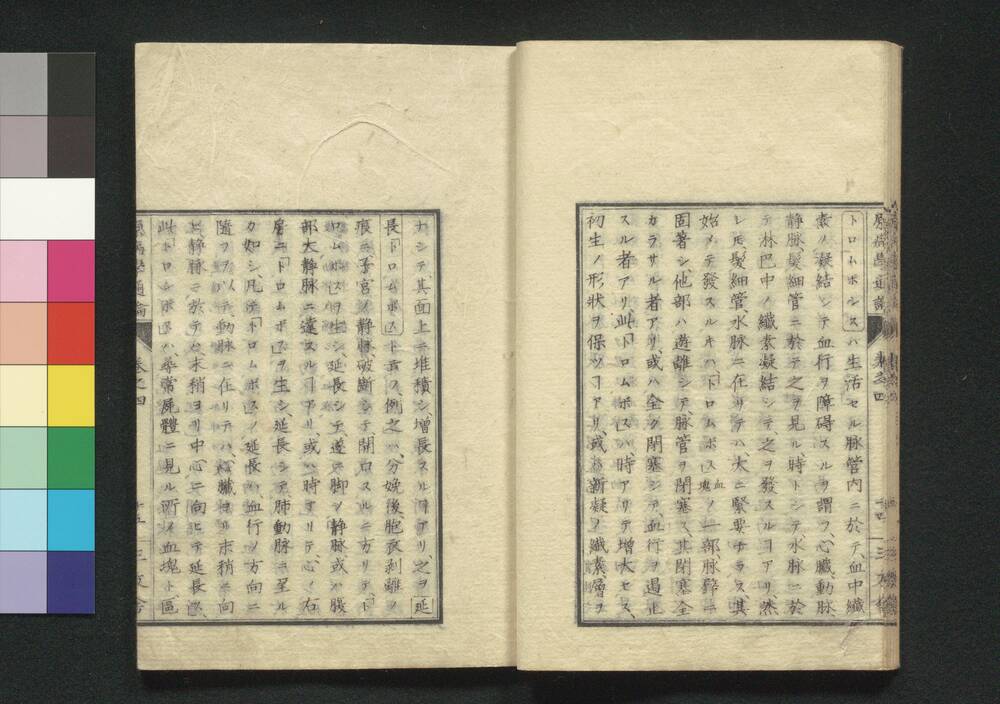 トロムボシスハ生活セル脉管内ニ於テ血中纎
素ノ凝結シテ血行ヲ障碍スルヲ謂フ、心臓、動脉、
靜脉、髮細管ニ於テ之ヲ見ル、時トシテ水脉ニ於
テ淋巴中ノ纎素凝結シテ之ヲ發スルコアリ、然
レ𪜈、髮細管、水脉ニ在リテハ、大ニ緊要ナラス、其
始メテ發スルキハ、「トロムボス」血塊ノ一部、脉壁ニ
固著シ他部ハ遊離シテ、脉管ヲ閉塞ス、其閉塞全
カラサル者アリ、或ハ全ク閉塞シテ、血行ヲ遏止
スル者アリ、此「トロムボス」ハ、時アリテ増大セス、
初生ノ形状ヲ保ツコアリ、或ハ新凝ノ纎素層ヲ
原病學通論
卷之四
ナシテ、其面上ニ堆積シ、増長スルコアリ、之ヲ延
長「トロムボス」ト云フ、例之ハ、分娩後胞衣剥離ノ
痕ニ、子宮ノ静脉破斷シテ開口スルニ方リテ、「ト
ロムボス」ヲ生シ、延長シテ遂ニ脚ノ静脉或ハ腹
部大静脉ニ達スルコアリ、或ハ時アリテ、心ノ右
房ニ「トロムボス」ヲ生シ、延長シテ肺動脉ニ至ル
カ如シ、凡テ「トロムボス」ノ延長ハ、血行ノ方向ニ
隨フヲ以テ、動脉ニ在リテハ、心臓ヨリ末稍ニ向
ヒ、静脉ニ於テハ末稍ヨリ中心ニ向ヒテ延長ス、
此「トロンボス」ハ、尋常屍體ニ見ル所ノ血塊ト區
原病學通論
卷之四